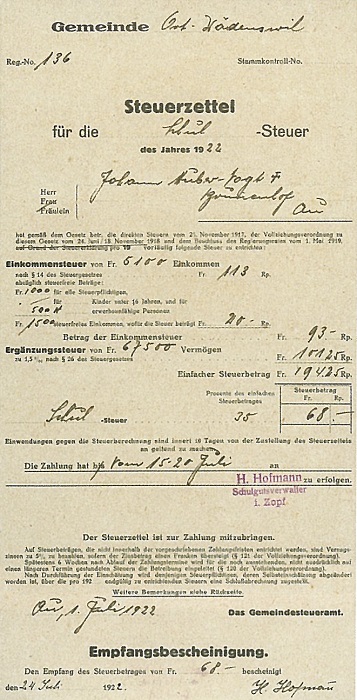 Gemeinde Ort-Wädenswil
Reg.-No. 136 Stammkontroll-No.
Steuerzettel
für die Schul -Steuer
des Jahres 1922
Johann Huber-Vogt
Herr
Frau
Fräulein
Au
hat gemäß dem Gesetz betr. die direkten Steuern vom 25. November 1917, der Vollziehungsverordnung zu
diesem Gesetz vom 24. Juni/18. November 1918 und dem Beschluss des Regierungsrates vom 1. Mai 1919,
auf Grund der Steuererklärung pro 19 vorläufig folgende Steuer zu entrichten:
Einkommensteuer von Fr. 5100 Einkommen
nach § 14 des Steuergesetzes Fr. 113 Rp.
abzüglich steuerfreie Beträge:
Fr. 1000 für alle Steuerpflichtigen,
für Kinder unter 16 Jahren, und für
500 erwerbsunfähige Personen
Fr. 1500 steuerfreies Einkommen, wofür die Steuer beträgt Fr. 20.- Rp.
Betrag der Einkommensteuer Fr. 93.- Rp.
Ergänzungssteuer von Fr. 67500 Vermögen
zu 1,5 ‰, nach § 26 des Steuergesetzes Fr. 101.25 Rp.
Einfacher Steuerbetrag Fr. 194.25 Rp.
Prozente des einfachen Steuerbetrages
Steuerbetrag
Fr. Rp.
Schul -Steuer 35 68.-
Einwendungen gegen die Steuerberechnung sind innert 10 Tagen von der Zustellung des Steuerzettels
an geltend zu machen.
Die Zahlung hat vom 15-20 Juli an
H. Hofmann zu erfolgen.
Schulgutsverwalter
i. Zopf.
Der Steuerzettel ist zur Zahlung mitzubringen.
Auf Steuerbeträgen, die nicht innerhalb der vorgeschriebenen Zahlungsfristen entrichtet werden, sind Verzugs-
zinsen zu 5%, zu bezahlen, sofern der Zinsbetrag einen Franken übersteigt (§ 121 der Vollziehungsverordnung).
Spätestens 6 Wochen nach Ablauf der Zahlungstermine wird für die noch ausstehenden, nicht ausdrücklich auf
einen längeren Termin gestundeten Steuern die Betreibung eingeleitet (§ 120 der Vollziehungsverordnung).
Nach Durchführung der Einschätzung wird denjenigen Steuerpflichtigen, deren Selbsteinschätzung abgeändert
worden ist, über die pro 192 endgültig zu entrichtenden Steuern eine Schlußabrechnung zugestellt.
Weitere Bemerkungen siehe Rückseite.
Au, 1. Juli 1922
Das Gemeindesteueramt.
Empfangsbescheinigung.
Den Empfang des Steuerbetrages von Fr. 68.- bescheinigt
den 24 Juli 1922. H. Hofmann